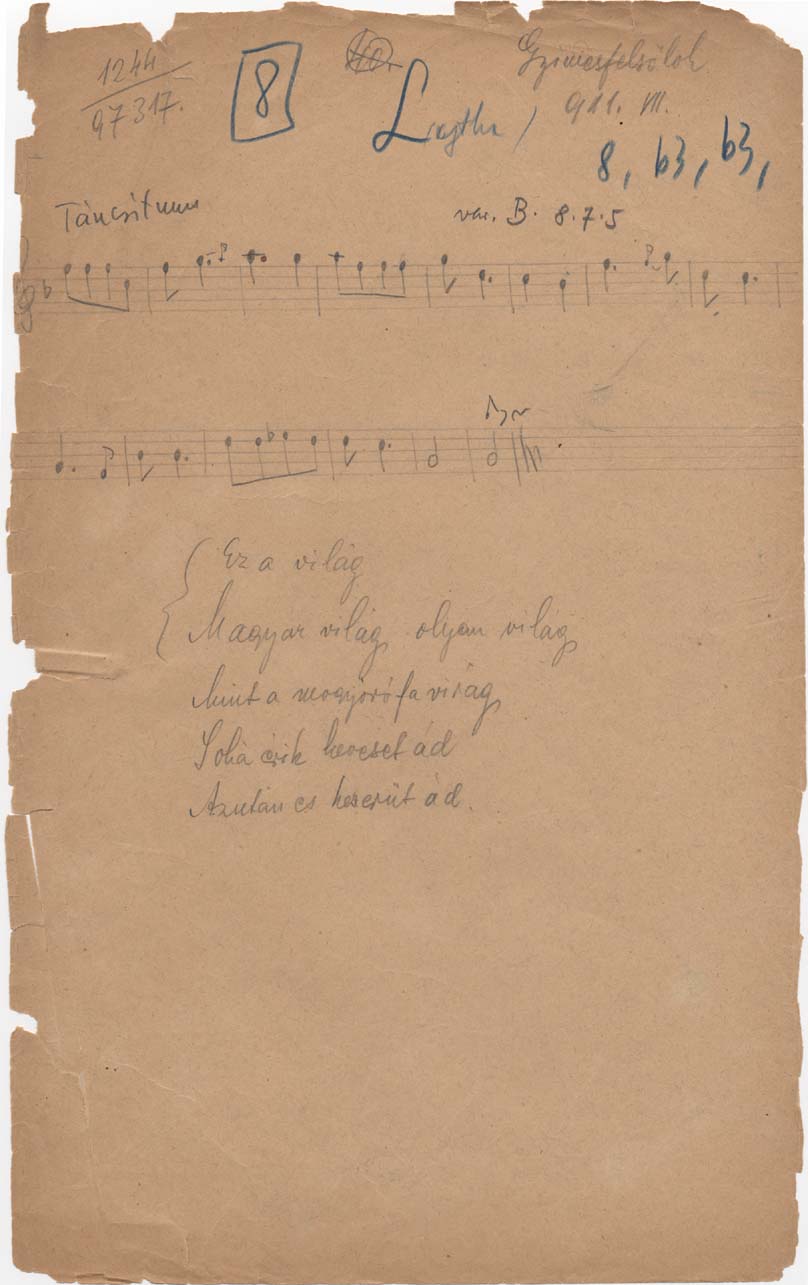 1244
97317.
8
Gyimesfelsőlok
911. VII.
Lajtha
8, b3, b3,
Táncritmus
var. B. 8.7.5
Ez a világ
Magyar világ olyan világ
Mint a mogyorófa virág
Soha csik keveset ád
Azután es keserűt ád.